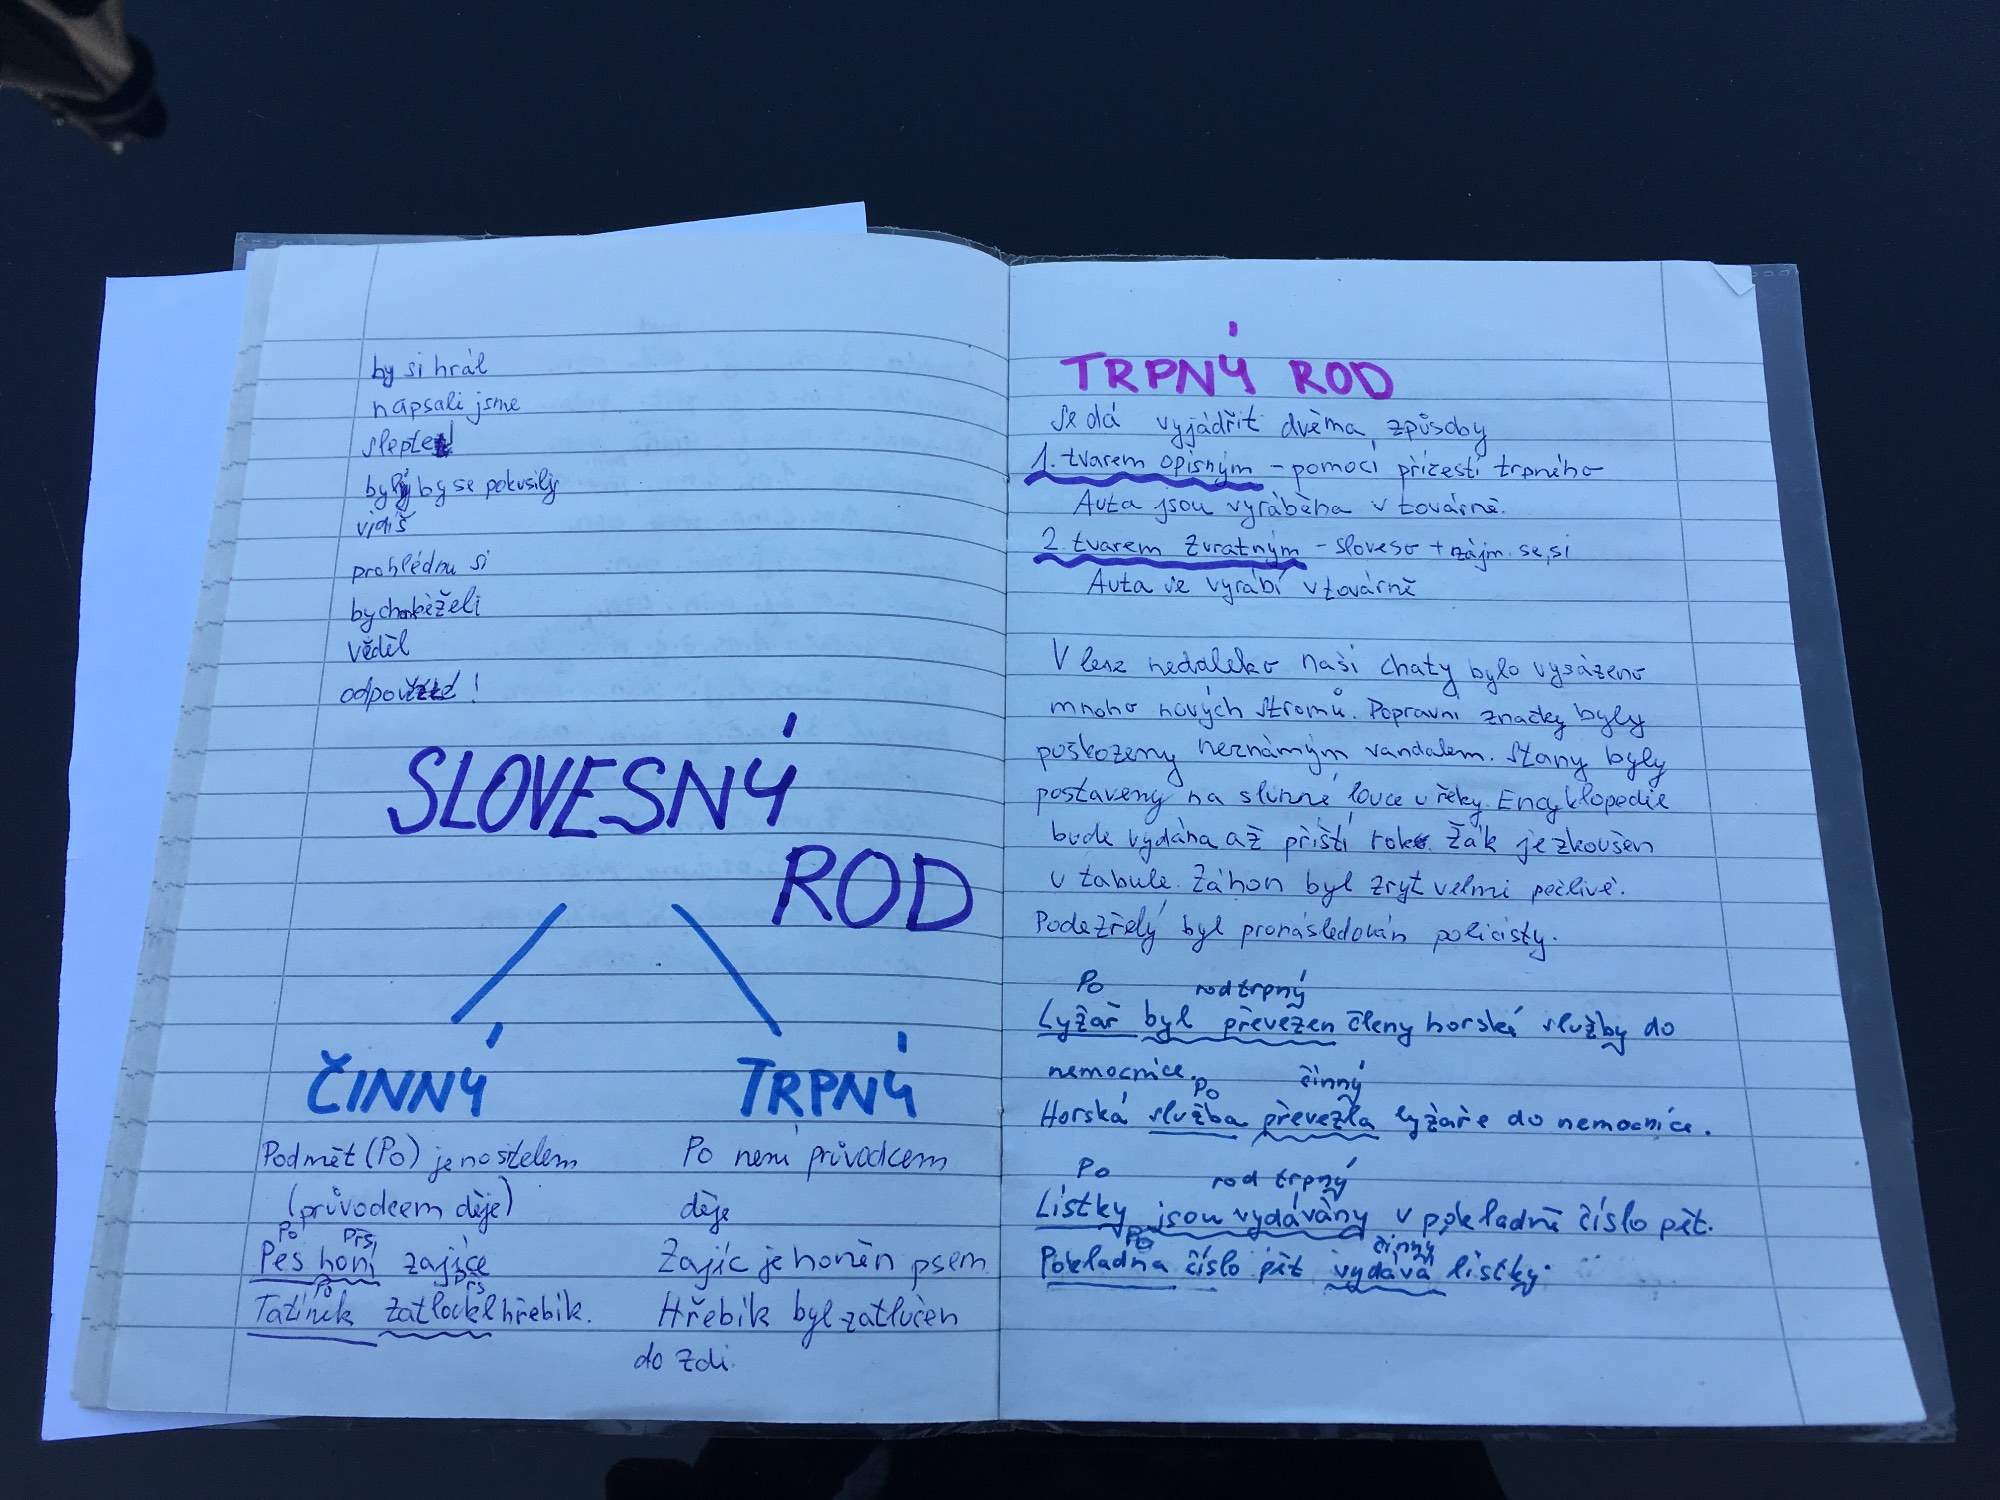 by si hrál
napsali jsme
slepte
byly by se pokusily
vidíš
prohlédnu si
bychom běželi
věděl
odpověz!
SLOVESNÝ
ROD
ČINNÝ
Podmět (Po) je nositelem
(průvodcem děje)
Po Přs
Pes honí zajíce
Po Přs
Tatínek zatloukl hřebík.
TRPNÝ
Po není průvodcem
děje
Zajíc je honěn psem
Hřebík byl zatlučen
do zdi.
TRPNÝ ROD
se dá vyjádřit dvěma způsoby
1. tvarem opisným - pomocí příčestí trpného
Auta jsou vyráběna v továrně.
2. tvarem zvratným - sloveso + zájm. se, si
Auta se vyrábí v továrně
V lese nedaleko naší chaty bylo vysázeno
mnoho nových stromů. Dopravní značky byly
poškozeny neznámým vandalem. Stany byly
postaveny na slunné louce u řeky. Encyklopedie
bude vydána až příští rok. Žák je zkoušen
u tabule. Záhon byl zryt velmi pečlivě.
Podezřelý byl pronásledován policisty.
Po rod trpný
Lyžař byl převezen členy horské služby do
nemocnice.
Po činný
Horská služba převezla lyžaře do nemocnice.
Po rod trpný
Lístky jsou vydávány v pokladně číslo pět.
Po činný
Pokladna číslo pět vydává lístky.